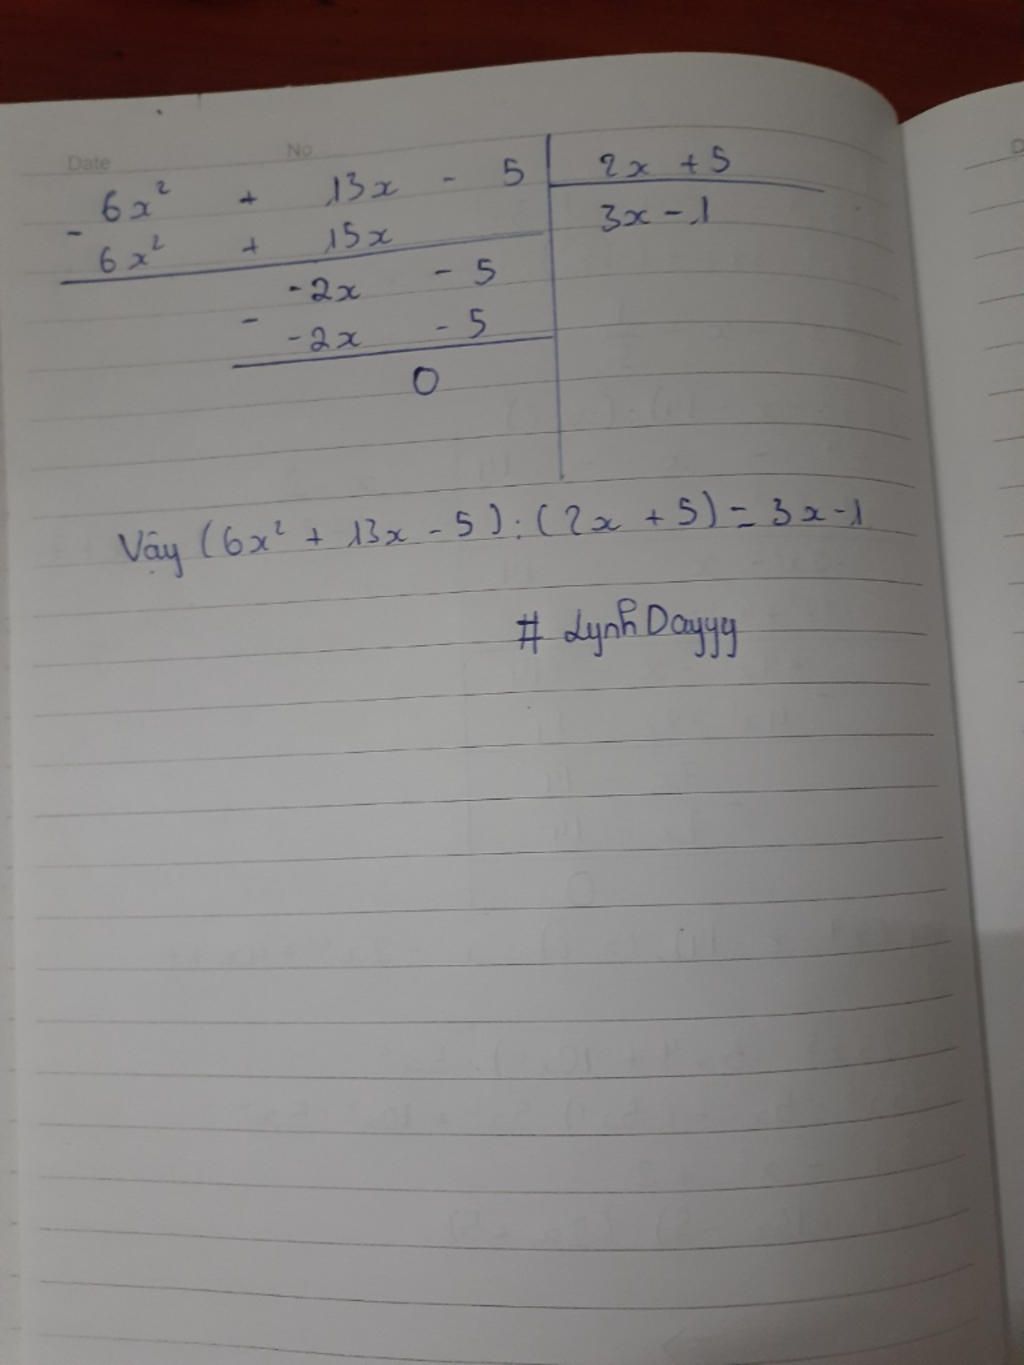 Date No
6x² + 13x - 5 | 2x + 5
- 6x² + 15x | 3x - 1
-2x - 5
- -2x - 5
0
Vậy (6x² + 13x - 5) : (2x + 5) = 3x - 1
# LynhDayyy